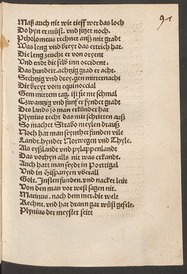 Maß auch nit wie tieff wer das loch
Do hyn er müst. vnd sitzet noch.
Ptholomeus rechnet auß mit gradt
Was leng vnd breyt das ertrich hat.
Die leng zeucht er von oryent
Vnd ende die selb inn occident.
Das hundert. achtzig grad er acht.
Sechtzig vnd drey. gen mitternacht
Die breyt vom equinoccial
Gen mittem tag. ist sie me schmal
Zwantzig vnd fünff er fyndet gradt
Des land so man erkundet hat
Plynius recht das mit schritten auß
So machet Strabo mylen drauß
Noch hat man seynther funden vile
Landt. hynder Norwegen vnd Thyle.
Als eyßlandt vnd pylappenlandt
Das vorhyn alls nit was erkandt.
Auch hat man seydt in Portigal
Vnd in Hispanyen überall
Golt. Inslen funden. vnd nacket leüt
Von den man vor west sagen nit.
Marinus. nach dem mer. die welt
Rechnt. vnd hat dran gar wüst gefelt.
Plynius der meyster seit